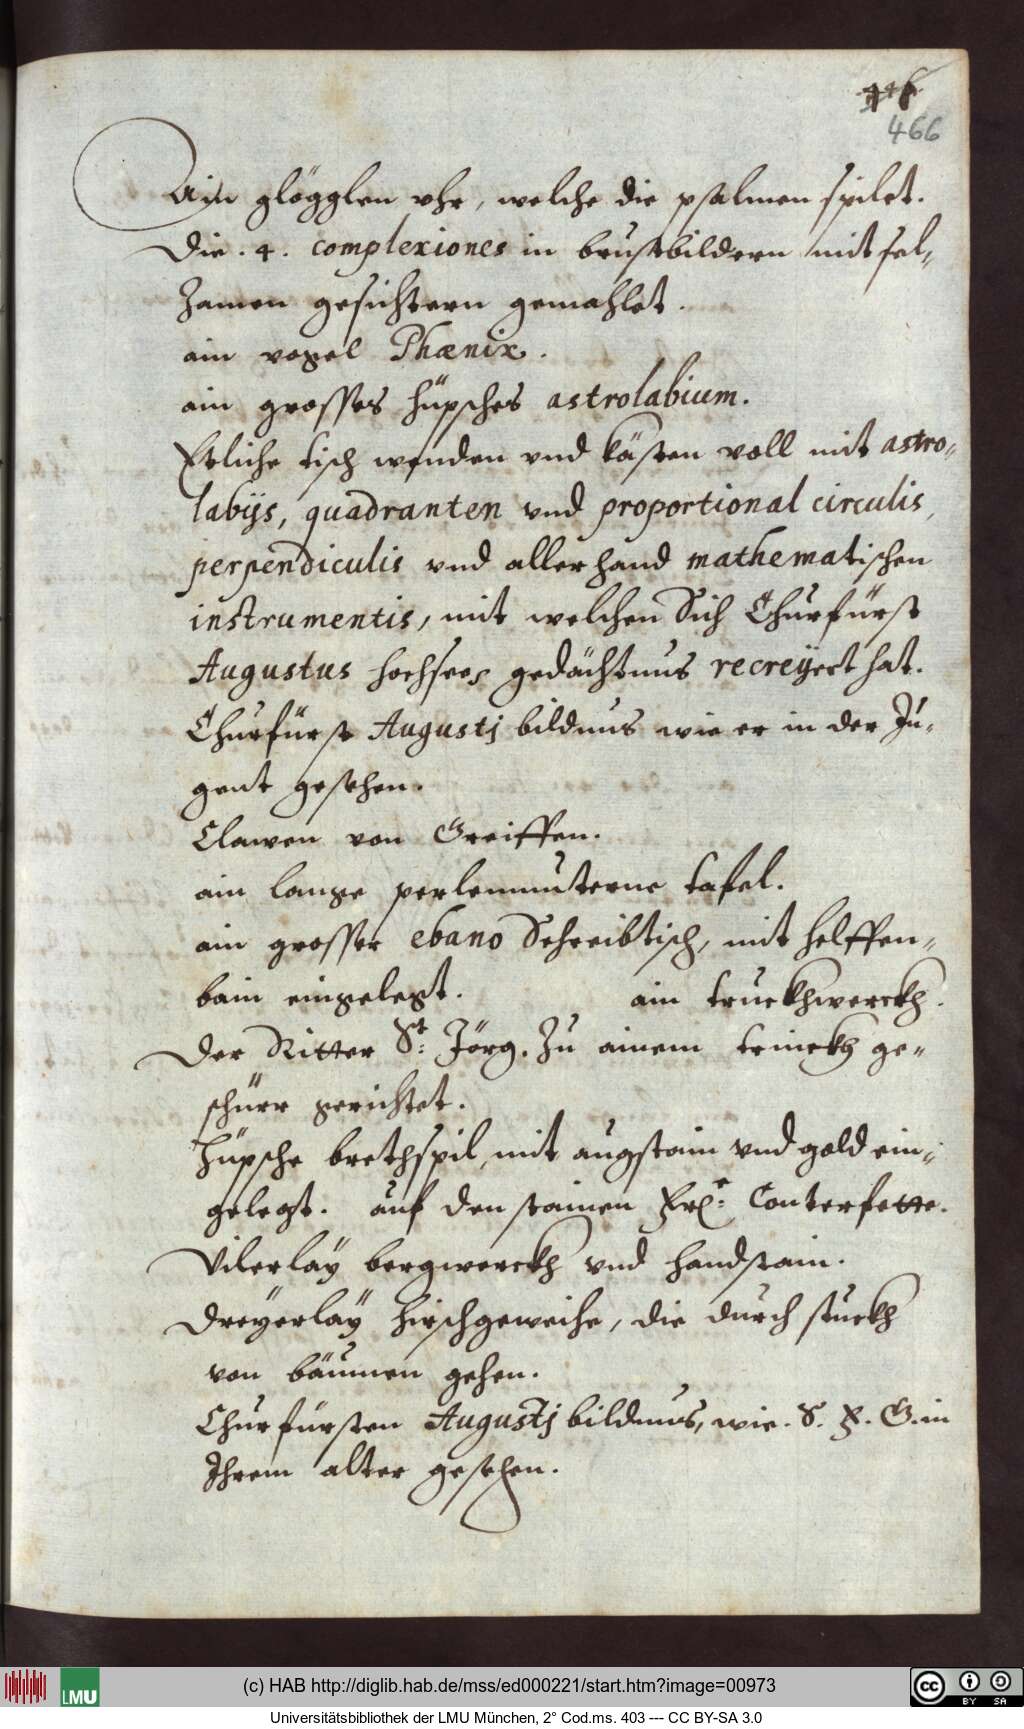 466
Ain glögglen vhr, welche die psalmen spilet.
Die .4. complexiones in brustbildern mit sel„
zamen gesichtern gemahlet.
ain vogel Phænix.
ain grosses hüpsches astrolabium.
Etliche tisch wenden vnd kästen voll mit astro„
labijs, quadranten vnd proportional circulis,
perpendiculis vnd allerhand mathematischen
instrumentis, mit welchen Sich Churfürst
Augustus gedächtnus recreyert hat.
Churfürst Augustj bildnus wie er in der Ju„
gent gesehen.
Clawen von Greiffen.
ain lange perlenmuterne tafel.
ain grosser ebano Schreibtisch, mit helffen„
bain eingelegt. ain truckhwerckh.
Der Ritter St: Jörg. Zu ainem trinckh ge„
schürr gerichtet.
Hüpsche brethspil, mit augstain vnd gold ein„
gelegt. auf den stainen Conterfette.
Vilerlay bergwerckh vnd handstain.
Dreyerlay hirschgeweihe, die durch stuckh
von bäumen gehen.
Churfürsten Augustj bildnus, wie. S. F. G. in
Ihrem alter gesehen.
LMU
(c) HAB http://diglib.hab.de/mss/ed000221/start.htm?image=00973
cc BY SA
Universitätsbibliothek der LMU München, 2° Cod.ms. 403 --- CC BY-SA 3.0